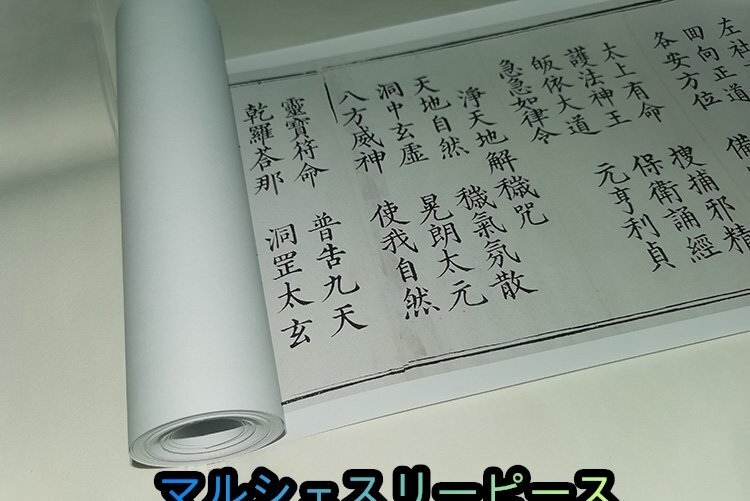 左社
回向正道
各安方位 備
太上有命 搜捕邪精
護法神王 保衛誦經
皈依大道 元亨利貞
急急如律令
淨天地解穢咒
天地自然 穢氣氛散
洞中玄虛 晃朗太元
八方威神 使我自然
靈寶符命 普告九天
乾羅荅那 洞罡太玄
マルシェスリーピース